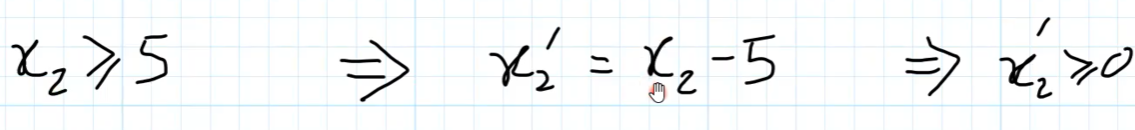 x₂ ⩾ 5 ⇒ x₂′ = x₂ − 5 ⇒ x₂′ ⩾ 0